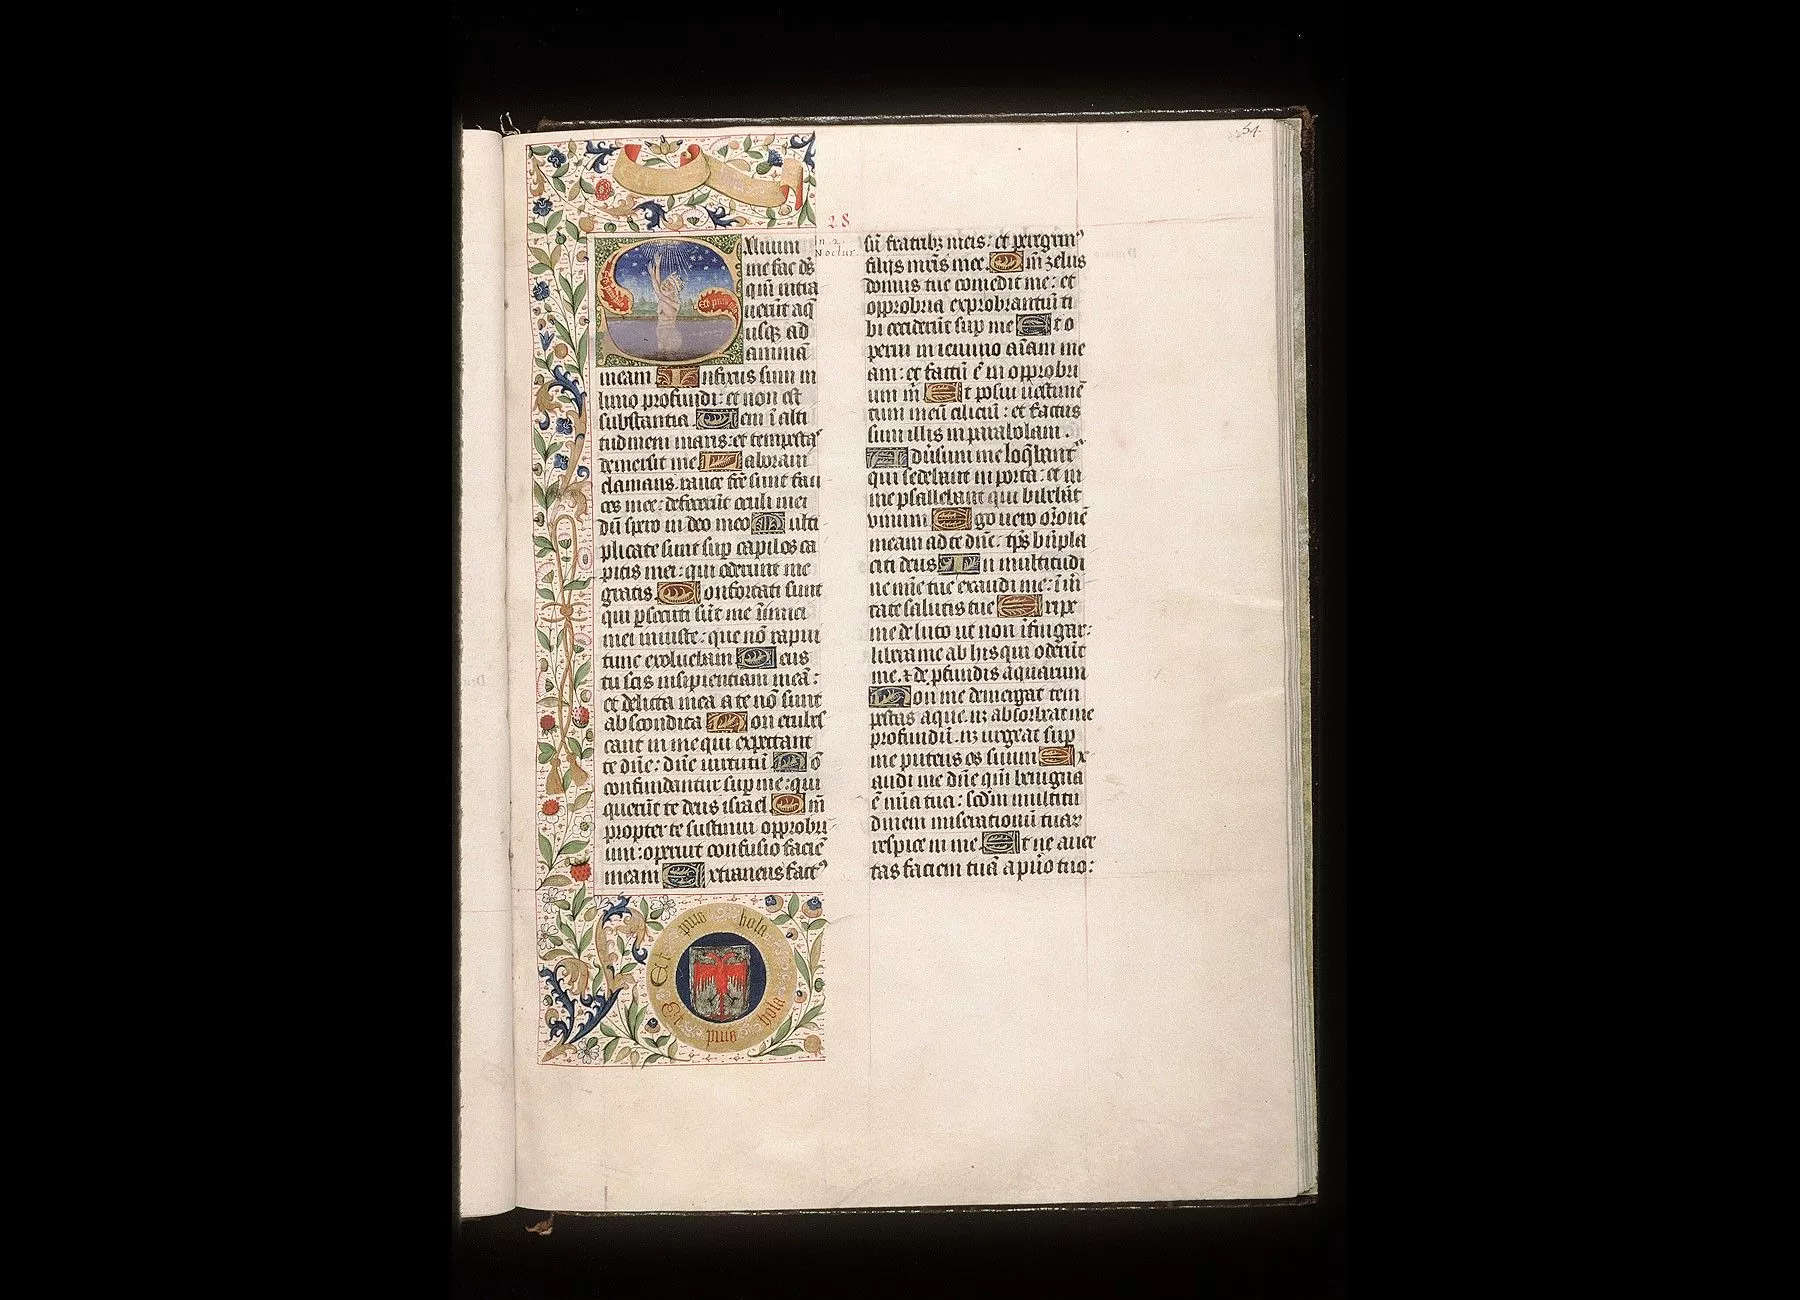 54
28
In 2
Noctur.
Saluum
me fac dſ
qm̄ intra
uerūt aq̄
uſqȝ ad
animā
meam Infixus ſum in
limo profundi: et non eſt
ſubſtantia Veni ī alti
tudinem maris: et tempeſtas
demerſit me Laboraui
clamans. rauce fc̄e ſunt fau
ces mee: defecerūt oculi mei
dū ſpero in deo meo Multi
plicate ſunt ſup capillos ca
pitis mei: qui oderunt me
gratis Confortati ſunt
qui pſecuti ſūt me inimici
mei iniuſte: que nō rapui
tunc exoluebam Deus
tu ſcis inſipientiam meā:
et delicta mea a te nō ſunt
abſcondita Non erubeſ
cant in me qui expectant
te dn̄e: dn̄e uirtutū Nō
confundantur ſup me: qui
querūt te deus iſrael Qm̄
propter te ſuſtinui opprobri
um: operuit confuſio faciē
meam Extraneus fact⁹
ſū fratribȝ meis: et peregrin⁹
filijs mr̄is mee Qm̄ zelus
domus tue comedit me: et
opprobria exprobrantiū ti
bi ceciderūt ſup me Et o
perui in ieiunio aīam me
am: et factū ē in opprobri
um m̄ Et poſui ueſtimē
tum meū ciliciū: et factus
ſum illis in parabolam.
Aduſum me loq̄bant᷑
qui ſedebant in porta: et in
me pſallebant qui bibebāt
vinum Ego uero orōnē
meam ad te dn̄e: tp̄s bn̄pla
citi deus In multitudi
ne mīe tue exaudi me: ī uī
tate ſalutis tue Eripe
me de luto ut non īfingar:
libera me ab his qui oderūt
me. ⁊ de pfundis aquarum
Non me demergat tem
peſtas aque. nȝ abſorbeat me
profundū. nȝ urgeat ſup
me puteus os ſuum Ex
audi me dn̄e qm̄ benigna
ē mīa tua: ſcdm̄ multitu
dinem miſerationū tuaꝝ
reſpice in me Et ne auer
tas faciem tuā a puo tuo:
Et plus hola
Et plus hola